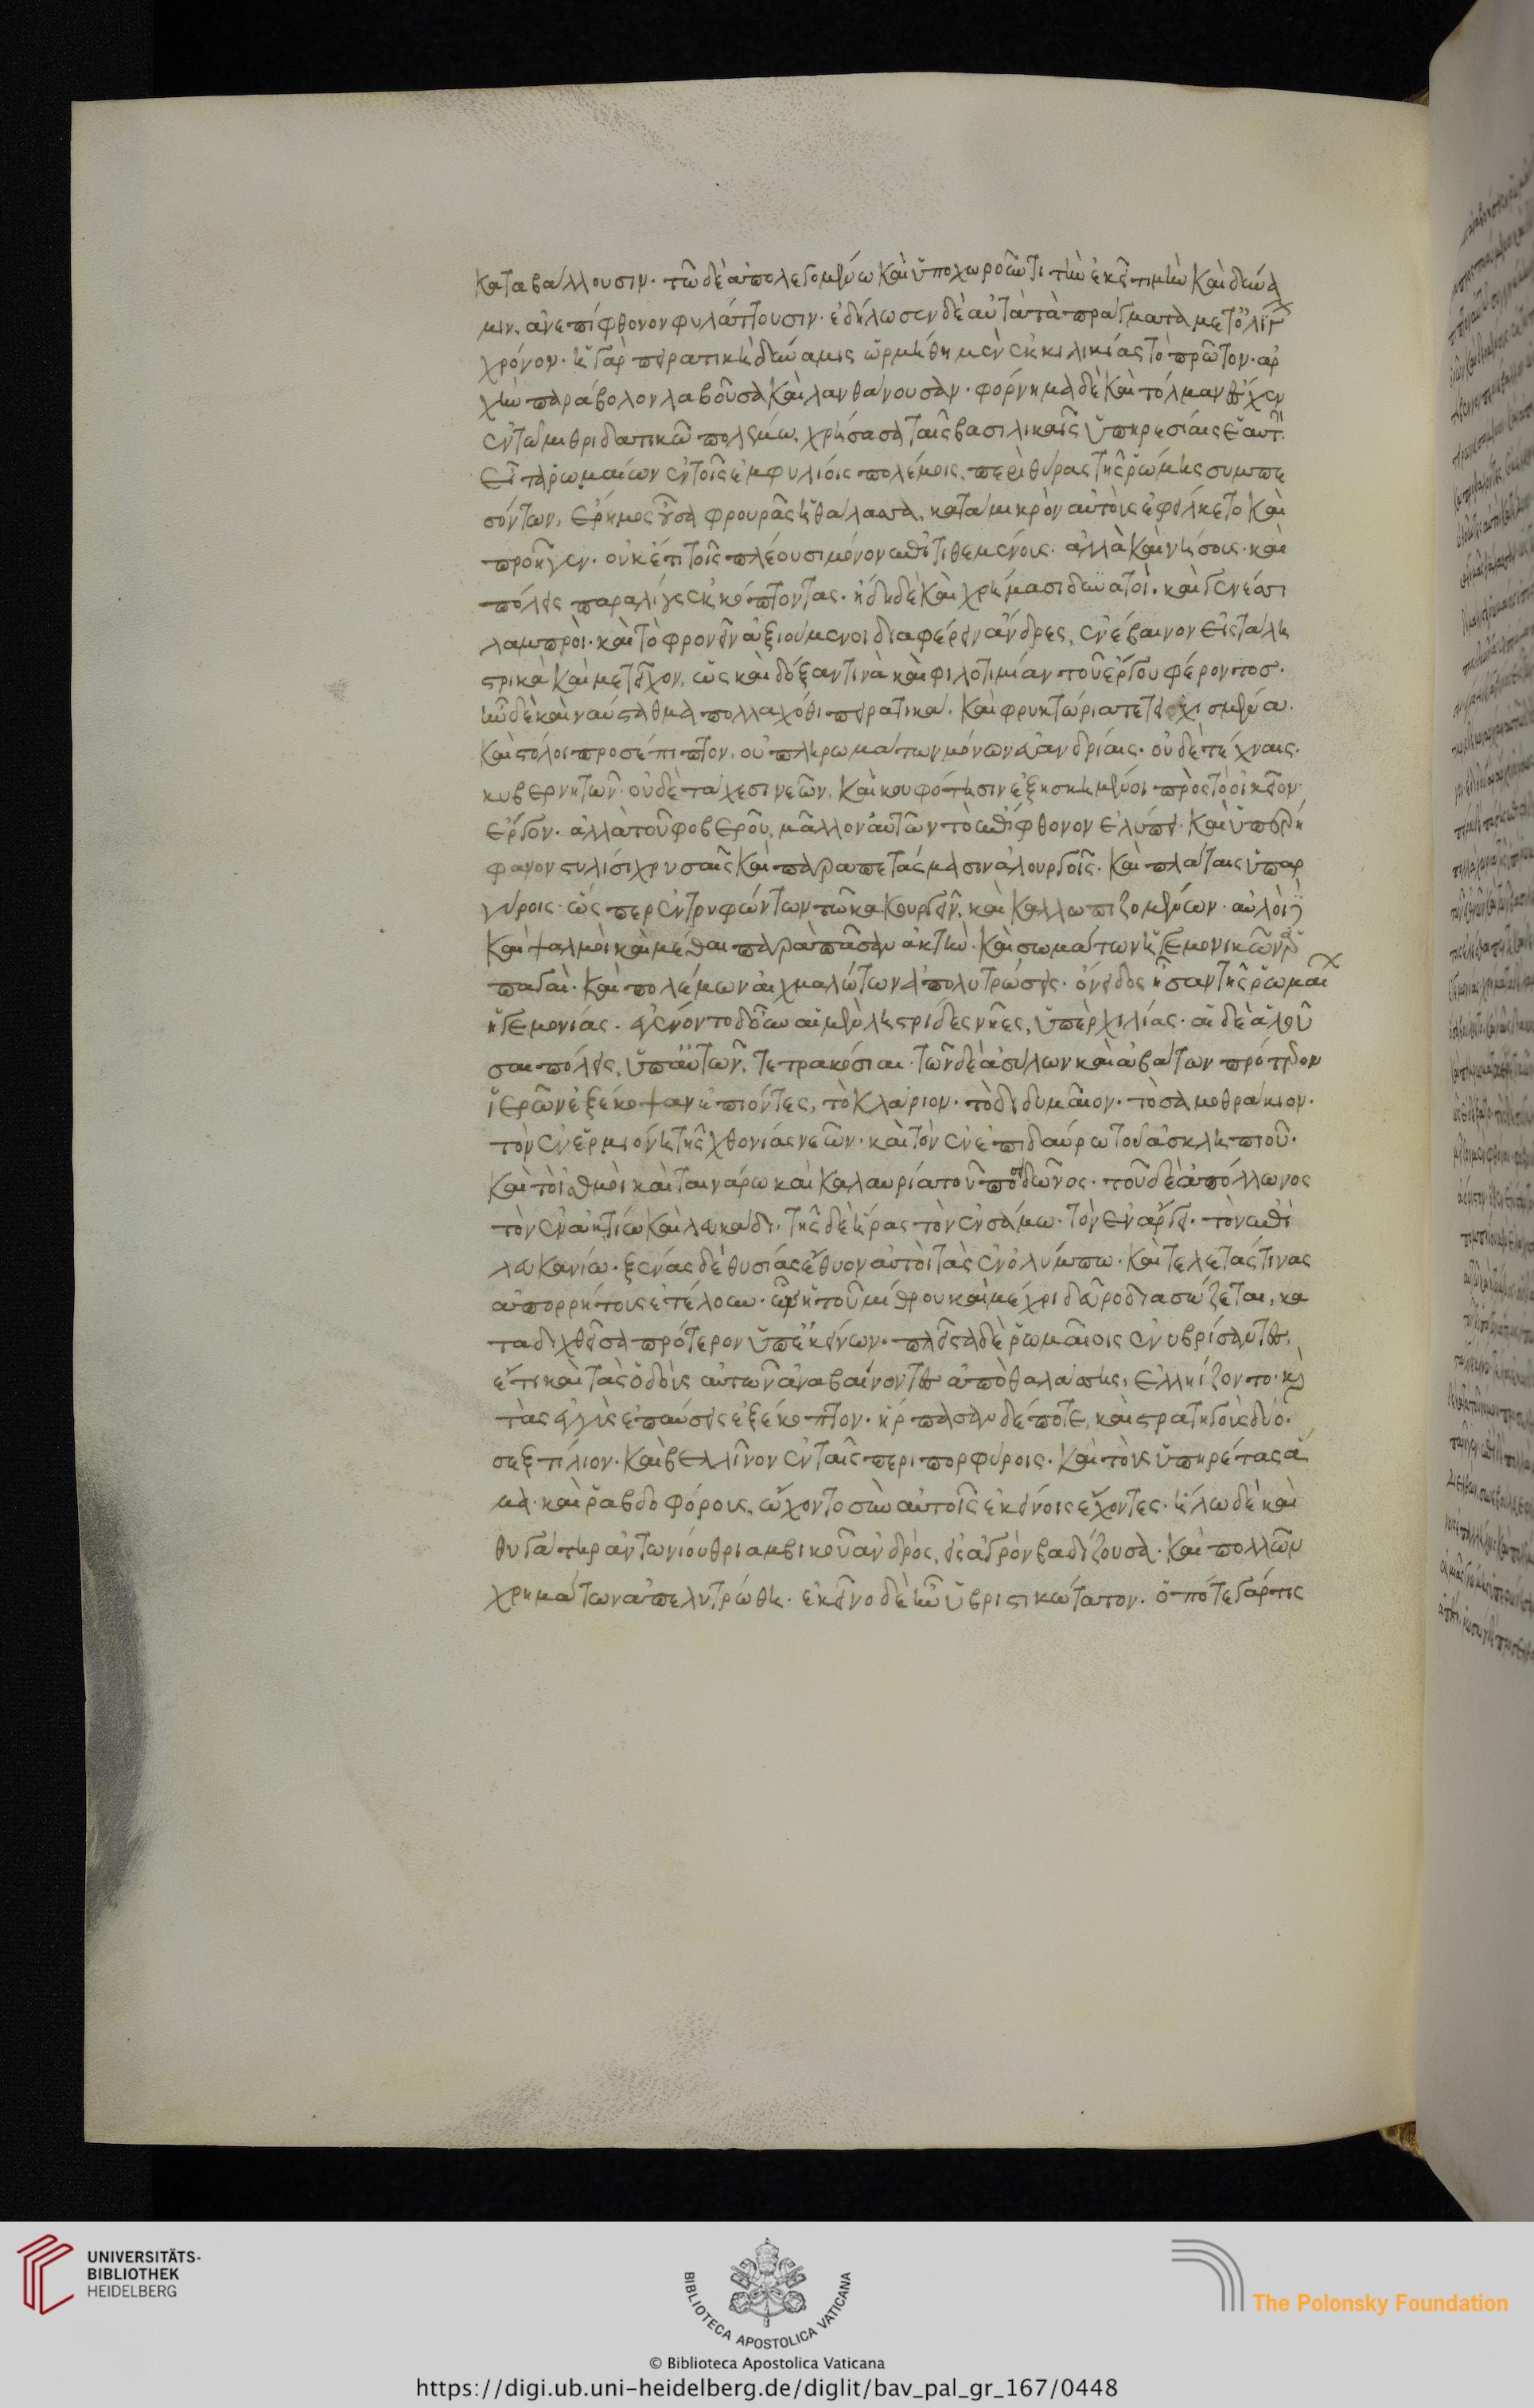 καταβάλλουσιν. τῶ δὲ ἀπολεγομένω καὶ ὑποχωροῦντι τὴν ἐκεῖ τιμὴν καὶ δύνα
μιν, ἀνεπίφθονον φυλάττουσιν. ἐδήλωσεν δὲ αὐτὰ τὰ πράγματα μετ ὀλίγον
χρόνον. ἡ γὰρ πειρατικὴ δύναμις ὡρμήθη μὲν ἐκ κιλικίας τὸ πρῶτον. ἀρ
χὴν παράβολον λαβοῦσα καὶ λανθάνουσαν. φρόνημα δὲ καὶ τόλμαν ἔσχεν
ἐν τῶ μιθριδατικῶ πολέμω, χρήσασα ταῖς βασιλικαῖς ὑπηρεσίαις ἑαυτήν.
εἶτα ῥωμαίων ἐν τοῖς ἐμφυλίοις πολέμοις, περὶ θύρας τῆς ῥώμης συμπε
σόντων, ἔρημος οὖσα φρουρᾶς ἡ θάλασσα, κατὰ μικρὸν αὐτοὺς ἐφείλκετο καὶ
προῆγεν. οὐκέτι τοῖς πλέουσι μόνον ἐπιτιθεμένους. ἀλλὰ καὶ νήσους. καὶ
πόλεις παραλίους ἐκκόπτοντας. ἤδη δὲ καὶ χρήμασι δυνατοὶ. καὶ γένεσι
λαμπροὶ. καὶ τὸ φρονεῖν ἀξιούμενοι διαφέρειν ἄνδρες, ἐνέβαινον εἰς τὰ λη
στρικὰ καὶ μετεῖχον, ὡς καὶ δόξαν τινὰ καὶ φιλοτιμίαν τοῦ ἔργου φέροντος.
ἦν δὲ καὶ ναύσταθμα πολλαχόθι πειρατικὰ. καὶ φρυκτώρια τετειχισμένα.
καὶ στόλοι προσέπιπτον, οὐ πληρωμάτων μόνον εὐανδρίαις. οὐδὲ τέχναις.
κυβερνητῶν. οὐδὲ τάχεσι νεῶν, καὶ κουφότησιν ἐξησκημένοι πρὸς τὸ οἰκεῖον
ἔργον. ἀλλὰ τοῦ φοβεροῦ, μᾶλλον αὐτῶν τὸ ἐπίφθονον ἐλύπει. καὶ ὑπερή
φανον στυλίσι χρυσαῖς καὶ παραπετάσμασιν ἁλουργοῖς. καὶ πλάταις ὑπαρ
γύροις. ὥσπερ ἐντρυφώντων τῶ κακουργεῖν, καὶ καλλωπιζομένων. αὐλοὶ δὲ
καὶ ψαλμοὶ καὶ μέθαι παρὰ πᾶσαν ἀκτὴν. καὶ σωμάτων ἡγεμονικῶν ἁρ
παγαὶ. καὶ πολέμων αἰχμαλώτων ἀπολυτρώσεις. ὄνειδος ἦσαν τῆς ῥωμαίων
ἡγεμονίας. ἐγένοντο δ οὖν αἱ μὲν ληστρίδες νῆες, ὑπὲρ χιλίας. αἱ δὲ ἁλοῦ
σαι πόλεις, ὑπ αὐτῶν, τετρακόσιαι. τῶν δὲ ἀσύλων καὶ ἀβάτων πρότερον
ἱερῶν ἐξέκοψαν ἐπιόντες, τὸ κλάριον. τὸ διδυμαῖον. τὸ σαμοθράκιον.
τὸν ἐν ἑρμιόνη τῆς χθονίας νεῶν. καὶ τὸν ἐν ἐπιδαύρω τοῦ ἀσκληπιοῦ.
καὶ τοὺς ἰσθμοῖ καὶ ταινάρω καὶ καλαυρία τοῦ ποσειδῶνος. τοῦ δὲ ἀπόλλωνος
τὸν ἐν ἀκτίω καὶ λευκάδι. τῆς δὲ ἥρας τὸν ἐν σάμω. τὸν ἐν ἄργει. τὸν ἐπὶ
λευκανίω. ξένας δὲ θυσίας ἔθυον αὐτοὶ τὰς ἐν ὀλύμπω. καὶ τελετάς τινας
ἀπορρήτους ἐτέλουν. ὧν ἡ τοῦ μίθρου καὶ μέχρι δεῦρο διασώζεται, κα
ταδειχθεῖσα πρότερον ὑπ ἐκείνων. πλεῖστα δὲ ῥωμαίοις ἐνυβρίσαντες,
ἔτι καὶ τὰς ὁδοὺς αὐτῶν ἀναβαίνοντες ἀπὸ θαλάσσης, ἐληίζοντο. καὶ
τὰς ἐγγὺς ἐπαύλεις ἐξέκοπτον. ἥρπασαν δέ ποτε, καὶ στρατηγοὺς δύο.
σεξτίλιον. καὶ βελλῖνον ἐν ταῖς περιπορφύροις. καὶ τοὺς ὑπηρέτας ἅ
μα. καὶ ῥαβδοφόρους, ὤχοντο σὺν αὐτοῖς ἐκείνοις ἔχοντες. ἥλω δὲ καὶ
θυγάτηρ ἀντωνίου θριαμβικοῦ ἀνδρός, εἰς ἀγρὸν βαδίζουσα. καὶ πολλῶν
χρημάτων ἀπελυτρώθη. ἐκεῖνο δὲ ἦν ὑβριστικώτατον. ὁπότε γάρ τις
UNIVERSITÄTS-
BIBLIOTHEK
HEIDELBERG
BIBLIOTECA APOSTOLICA VATICANA
The Polonsky Foundation
© Biblioteca Apostolica Vaticana
https://digi.ub.uni-heidelberg.de/diglit/bav_pal_gr_167/0448